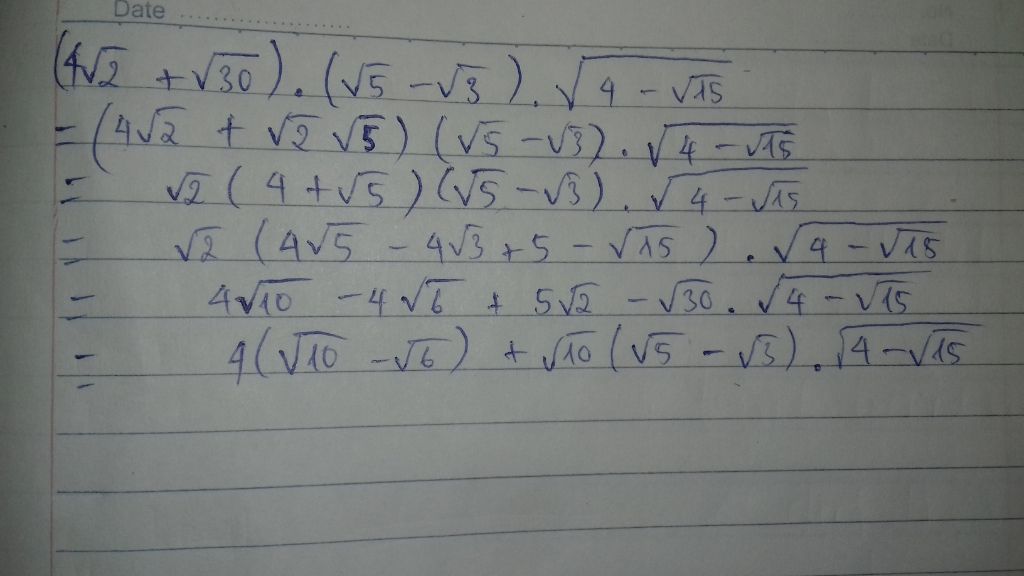 Date ....................
(4√2 + √30) . (√5 − √3) . √(4 − √15)
= (4√2 + √2 √5) (√5 − √3) . √(4 − √15)
= √2 (4 + √5) (√5 − √3) . √(4 − √15)
= √2 (4√5 − 4√3 + 5 − √15) . √(4 − √15)
= 4√10 − 4√6 + 5√2 − √30 . √(4 − √15)
= 4(√10 − √6) + √10 (√5 − √3) . √(4 − √15)